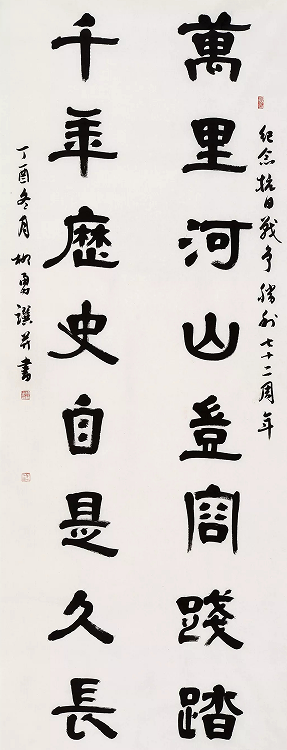 紀念抗日戰爭勝利七十二周年
萬里河山豈容踐踏
千年歷史自是久長
丁酉冬月柳勇譔并書